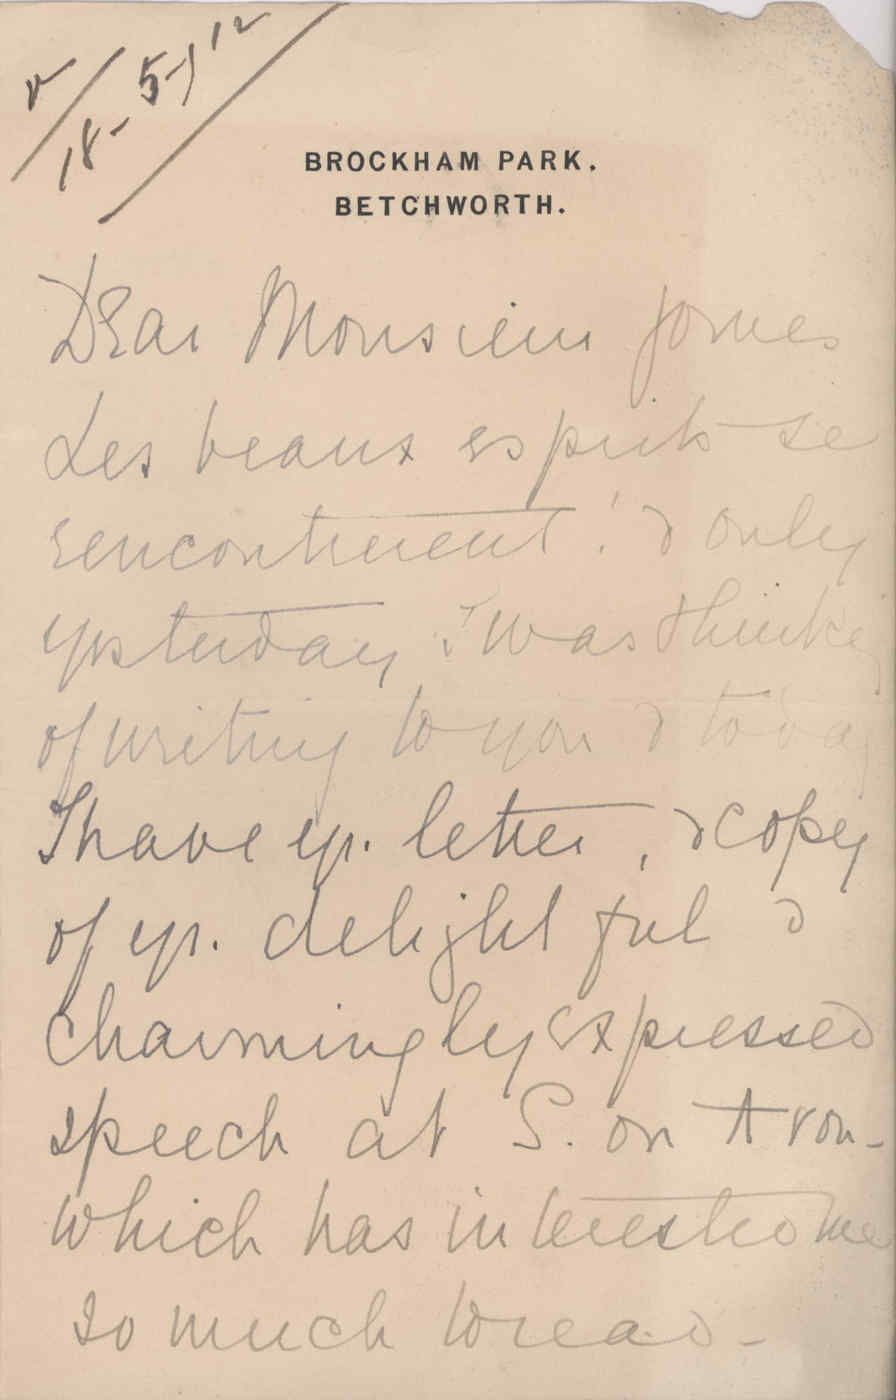 v/18-5-12
BROCKHAM PARK.
BETCHWORTH.
Dear Monsieur Jorues
Les beaux esprits se
rencontrent! & only
yesterday I was thinking
of writing to you & today
I have yr. letter, & copy
of yr. delightful &
charmingly expressed
speech at S. on Avon-
which has interested me
so much to read-